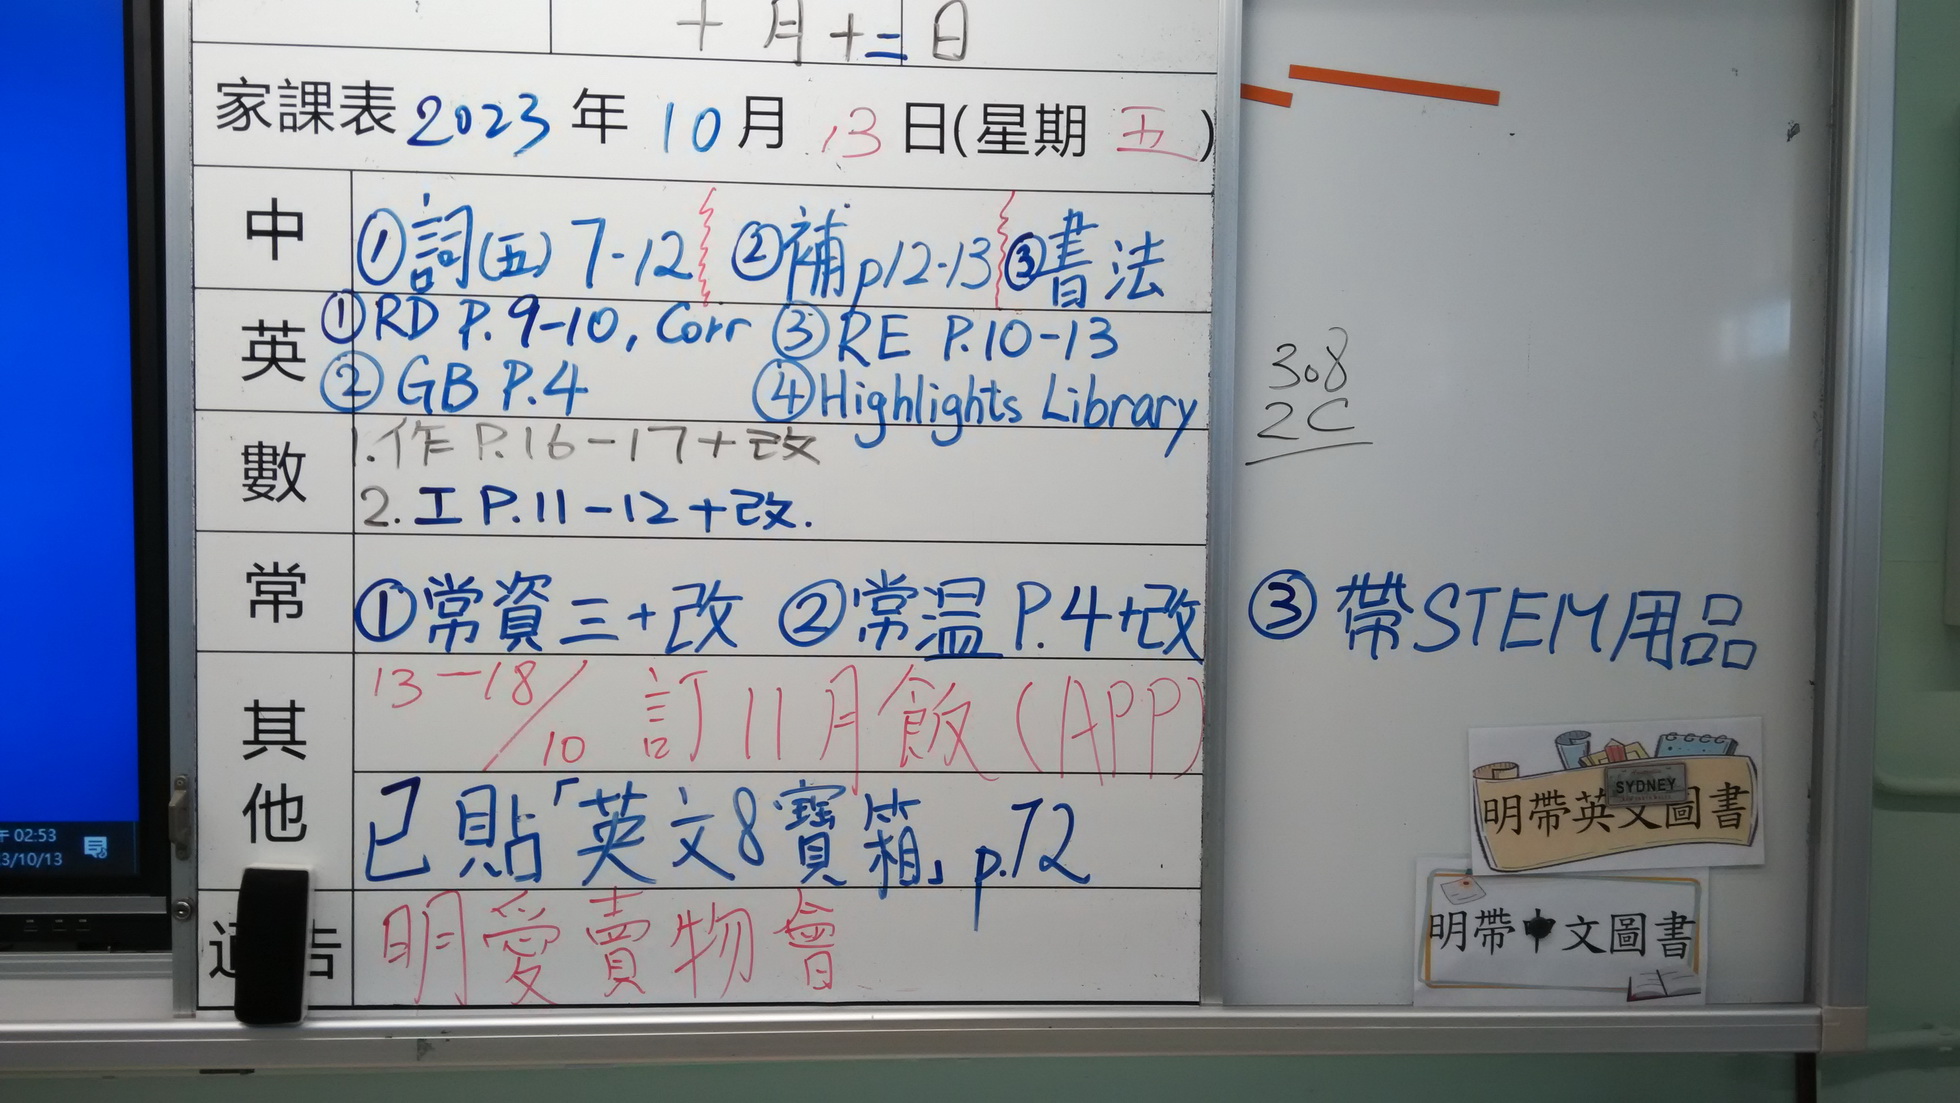 十月十二日
家課表 2023 年 10 月 13 日(星期 五)
中 ①詞(五) 7-12 ②補p12-13 ③書法
英 ①RD P.9-10, Corr ③RE P.10-13
②GB P.4 ④Highlights Library
數 1.作 P.16-17+改
2.工 P.11-12+改.
常 ①常資三+改 ②常温 P.4+改 ③帶STEM用品
其他 13-18/10 訂11月飯(APP)
已貼「英文8寶箱」p.72
告 明愛賣物會
308
2C
SYDNEY
明帶英文圖書
明帶中文圖書
02:53
3/10/13